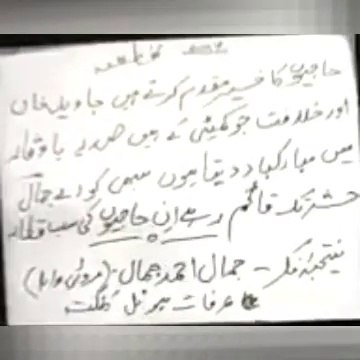 قطعہ
حاجیوں کا خیر مقدم کرتے ہیں جاوید خاں
اور خلافت جو کمیٹی کے ہیں صدر با وقار
میں مبارکباد دیتا ہوں سبھی کو اے جمال
حشر تک قائم رہے ان حاجیوں کی سب قطار
نتیجۂ فکر - جمال احمد جمال (مروئی والا)
عرفات جرنل کلکتہ